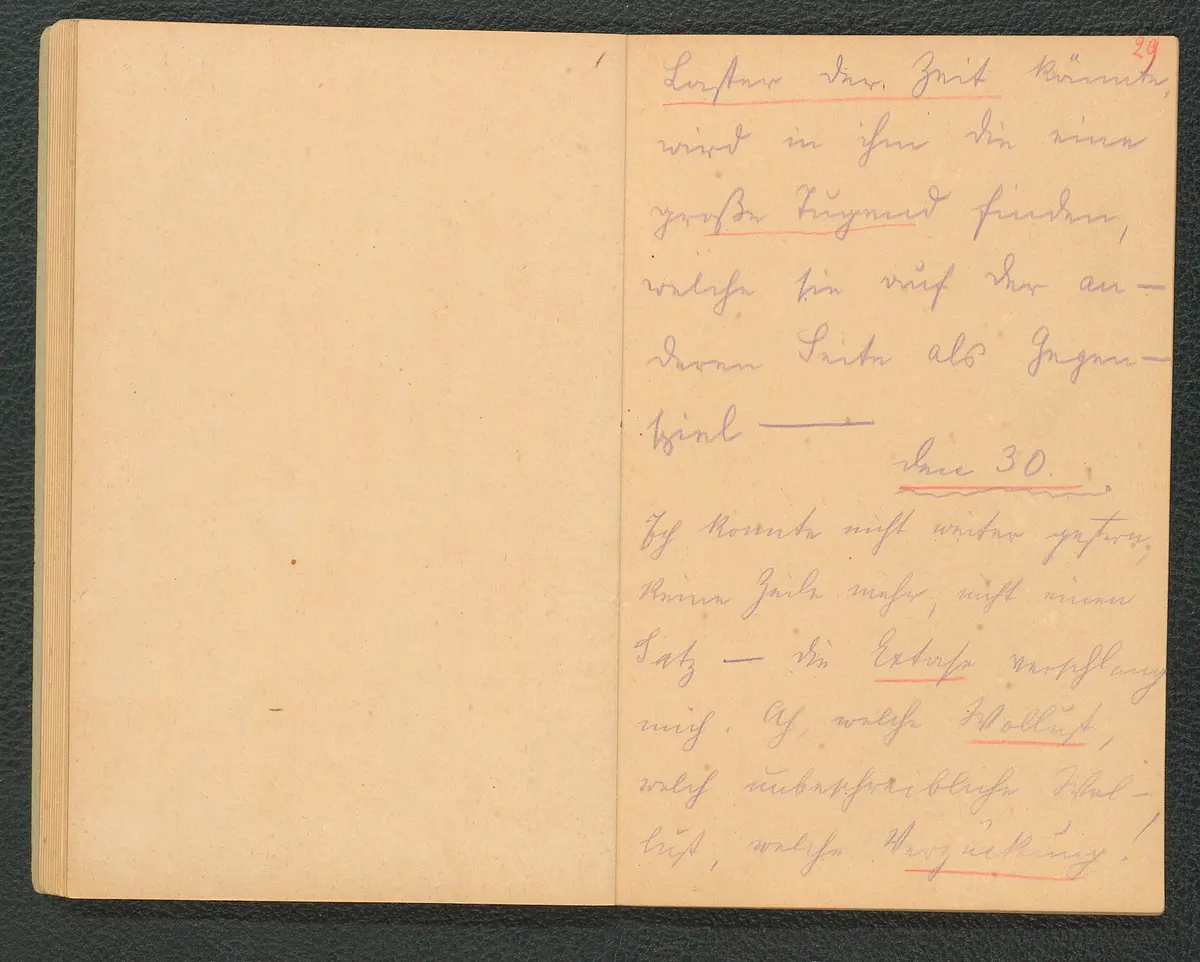 29
Laster der Zeit könnte,
wird in ihm die eine
große Tugend finden,
welche sie auf der an-
deren Seite als Gegen-
spiel —
den 30.
Ich konnte nicht weiter gestern,
keine Zeile mehr, nicht einen
Satz — die Extase verschlang
mich. Ah, welche Wollust,
welch unbeschreibliche Wol-
lust, welche Verzückung!